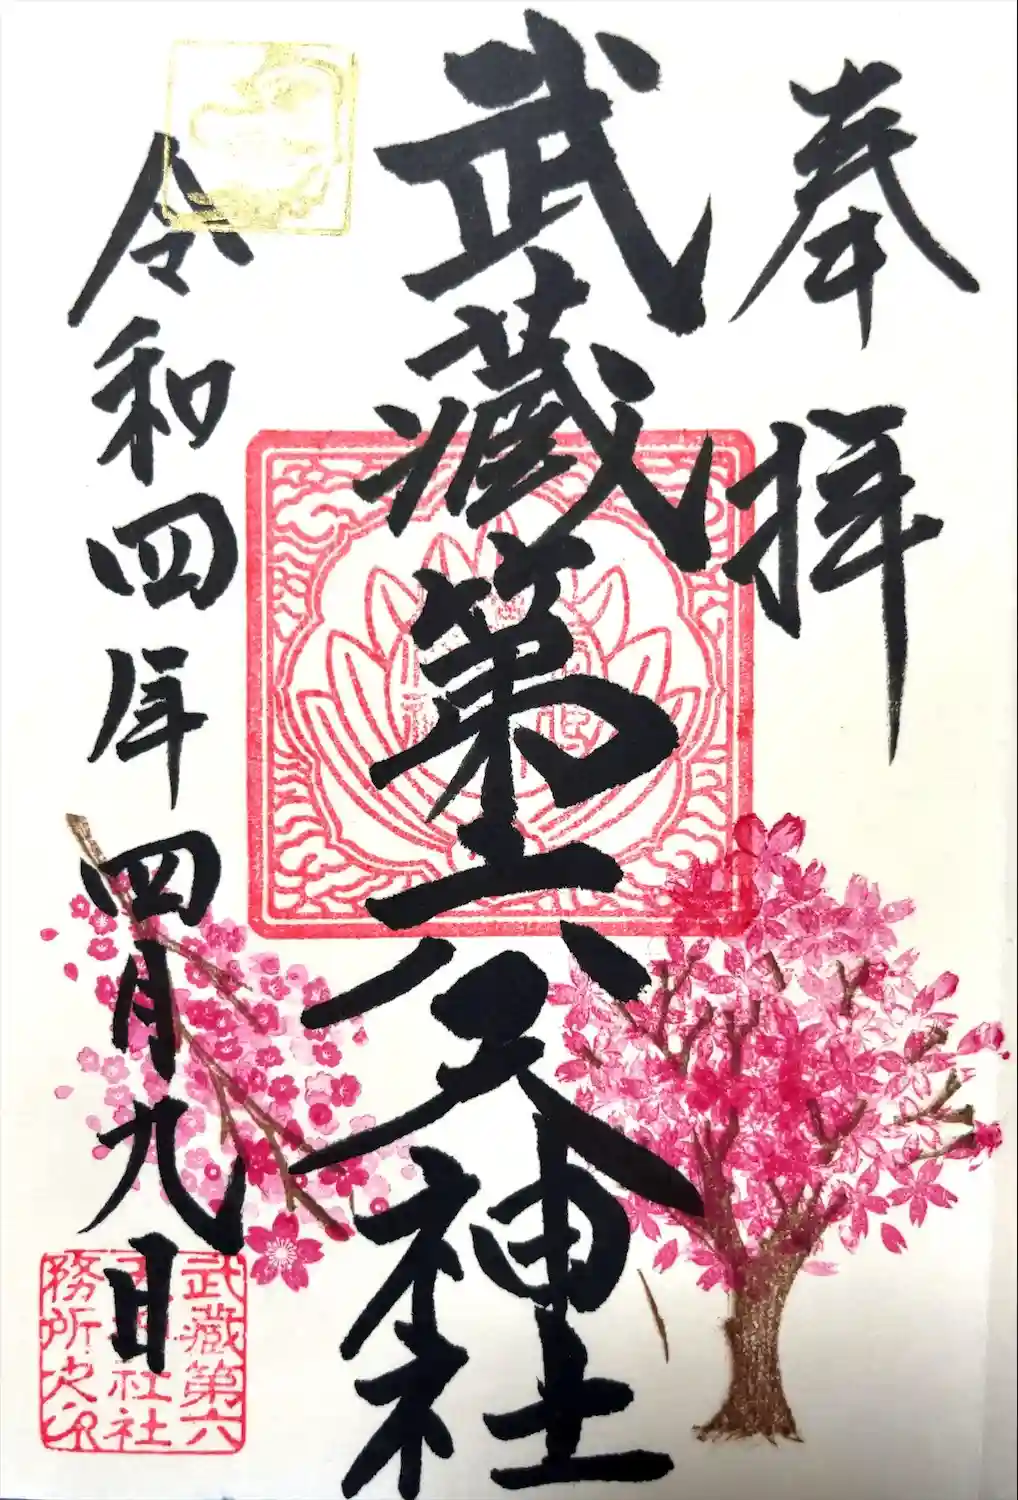 奉拝
武藏第六天神社
令和四年四月九日
武藏第六
天神社社
務所之印